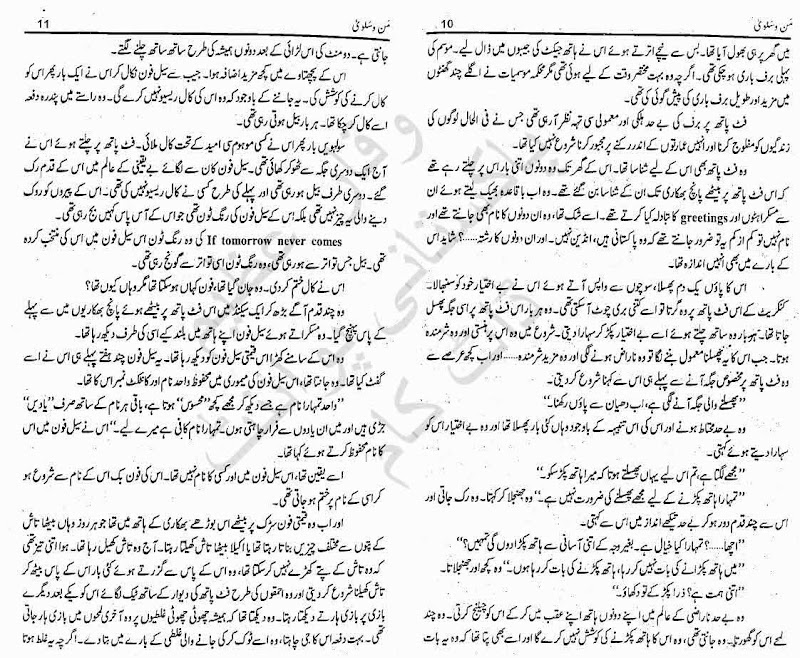 من وسلویٰ
10
میں گھر پر ہی بھول آیا تھا۔ بس سے نیچے اترتے ہوئے اس نے ہاتھ جیکٹ کی جیبوں میں ڈال لیے۔ موسم کی
پہلی برف باری ہو چکی تھی۔ اگرچہ وہ بہت مختصر وقت کے لیے ہوئی تھی مگر محکمہ موسمیات نے اگلے چند گھنٹوں
میں مزید اور طویل برف باری کی پیش گوئی کی تھی۔
فٹ پاتھ پر برف کی بے حد ہلکی اور معمولی سی تہہ نظر آ رہی تھی جس نے فی الحال لوگوں کی
زندگیوں کو مفلوج کرنا اور انہیں عمارتوں کے اندر رکنے پر مجبور کرنا شروع نہیں کیا تھا۔
وہ فٹ پاتھ بھی اس کے لیے شناسا تھا۔ اس کے گھر تک وہ دونوں اتنی بار اس پر چلتے رہے تھے
کہ اس فٹ پاتھ پر بیٹھے پانچ بھکاری تک ان کے شناسا بن گئے تھے۔ وہ اب باقاعدہ بھیک لیتے ہوئے ان
سے مسکراہٹوں اور greetings کا تبادلہ کیا کرتے تھے۔ اسے شک تھا، وہ ان دونوں کا نام بھی جانتے تھے اور
نام نہیں تو کم از کم یہ تو ضرور جانتے تھے کہ وہ پاکستانی ہیں، انڈین نہیں۔ اور ان دونوں کا رشتہ......؟ شاید اس
کے بارے میں بھی انہیں اندازہ تھا۔
اس کا پاؤں یک دم پھسلا، سوچوں سے واپس آتے ہوئے اس نے بے اختیار خود کو سنبھالا۔
کنکریٹ کے اس فٹ پاتھ پر وہ گرتا تو اسے کتنی بری چوٹ آ سکتی تھی۔ وہ ہر بار اس فٹ پاتھ پر اسی جگہ پھسل
جاتا تھا۔ ہر بار وہ ساتھ چلتے ہوئے اسے بے اختیار پکڑ کر سہارا دیتی۔ شروع میں وہ اس پر ہنستی اور وہ شرمندہ
ہوتا۔ جب اس کا یہ پھسلنا معمول بننے لگا تو وہ ناراض ہونے لگی اور وہ مزید شرمندہ...... اور اب کچھ عرصے سے
وہ فٹ پاتھ پر مخصوص جگہ آنے سے پہلے ہی اس سے کہنا شروع کر دیتی۔
”پھسلنے والی جگہ آنے لگی ہے، اب دھیان سے پاؤں رکھنا۔“
وہ بے حد محتاط ہونے اور اس کی اس تنبیہہ کے باوجود وہاں کئی بار پھسلا تھا اور وہ بے اختیار اس کو
سہارا دیتے ہوئے کہتی۔
”مجھے لگتا ہے، تم اس لیے یہاں پھسلتے ہوتا کہ میرا ہاتھ پکڑ سکو۔“
”تمہارا ہاتھ پکڑنے کے لیے مجھے پھسلنے کی ضرورت نہیں ہے۔“ وہ جھنجلا کر کہتا۔ وہ رک جاتی اور
اس سے چند قدم دور ہو کر بے حد تیکھے انداز میں اس سے کہتی۔
”اچھا......؟ تمہارا کیا خیال ہے۔ بغیر وجہ کے اتنی آسانی سے ہاتھ پکڑا دوں گی تمہیں؟“
”میں ہاتھ پکڑانے کی بات نہیں کر رہا، ہاتھ پکڑنے کی بات کر رہا ہوں۔“ وہ کچھ اور جھنجلاتا۔
”اتنی ہمت ہے؟ ذرا پکڑ کے تو دکھاؤ۔“
وہ بے حد ناراضی کے عالم میں اپنے دونوں ہاتھ اپنے عقب میں کر کے اس کو چیلنج کرتی۔ وہ چند
لمحے اس کو گھورتا۔ وہ جانتی تھی، وہ اس کا ہاتھ پکڑنے کی کوشش نہیں کرے گا اور اسے بھی پتا تھا کہ وہ یہ بات
من وسلویٰ
11
جانتی ہے۔ دو منٹ کی اس لڑائی کے بعد دونوں ہمیشہ کی طرح ساتھ ساتھ چلنے لگتے۔
اس کے پچھتاوے میں کچھ مزید اضافہ ہوا۔ جیب سے سیل فون نکال کر اس نے ایک بار پھر اس کو
کال کرنے کی کوشش کی۔ یہ جاننے کے باوجود کہ وہ اس کی کال ریسیو نہیں کرے گی۔ وہ راستے میں پندرہ دفعہ
اسے کال کر چکا تھا۔ ہر بار بیل ہوتی رہی تھی۔
سولہویں بار پھر اس نے کسی موہوم سی امید کے تحت کال ملائی۔ فٹ پاتھ پر چلتے ہوئے اس نے
آج ایک دوسری جگہ سے ٹھوکر کھائی تھی۔ سیل فون کان سے لگائے بے یقینی کے عالم میں اس کے قدم رک
گئے۔ دوسری طرف بیل ہو رہی تھی اور پہلے کی طرح کسی نے کال ریسیو نہیں کی تھی۔ اس کے پیروں کو روک
دینے والی یہ چیز نہیں تھی بلکہ اس کے سیل فون کی رنگ ٹون تھی جو اس کے آس پاس کہیں بج رہی تھی۔
If tomorrow never comes کی وہ رنگ ٹون اس سیل فون میں اس کی منتخب کردہ
تھی۔ بیل جس تواتر سے ہو رہی تھی، وہ رنگ ٹون اسی تواتر سے گونج رہی تھی۔
اس نے کال ختم کر دی۔ وہ جان گیا تھا، فون کہاں ہو سکتا تھا مگر وہاں کیوں تھا؟
وہ چند قدم آگے بڑھ کر ایک سیکنڈ میں اس فٹ پاتھ پر بیٹھے ہوئے پانچ بھکاریوں میں سے پہلے
کے پاس پہنچ گیا۔ وہ مسکراتے ہوئے سیل فون اپنے ہاتھ میں بلند کیے اسی کی طرف دیکھ رہا تھا۔
وہ اس کے سامنے کھڑا اس قیمتی سیل فون کو دیکھ رہا تھا۔ یہ سیل فون چند ہفتے پہلے ہی اس نے اسے
گفٹ کیا تھا۔ وہ جانتا تھا، اس سیل فون کی میموری میں محفوظ واحد نام اور کانٹیکٹ نمبر اس کا تھا۔
”واحد تمہارا نام ہے جسے دیکھ کر مجھے کچھ ”محسوس“ ہوتا ہے، باقی ہر نام کے ساتھ صرف ”یادیں“
جڑی ہیں اور میں ان یادوں سے فرار چاہتی ہوں۔ تمہارا نام کافی ہے میرے لیے۔“ اس نے سیل فون میں اس
کا نام محفوظ کرتے ہوئے کہا تھا۔
اسے یقین تھا، اس سیل فون میں اور کسی کا نام نہیں تھا۔ اس کی فون بک اس کے نام سے شروع ہو
کر اسی کے نام پر ختم ہو جاتی تھی۔
اور اب وہ قیمتی فون سڑک پر بیٹھے اس بوڑھے بھکاری کے ہاتھ میں تھا جو ہر روز وہاں بیٹھا تاش
کے پتوں سے مختلف چیزیں بناتا رہتا تھا یا اکیلا بیٹھا تاش کھیلتا رہتا۔ آج وہ تاش کھیل رہا تھا۔ ہوا اتنی تیز تھی
کہ وہ تاش کے پتے کھڑے نہیں کر سکتا تھا، وہ اس کے پاس سے گزرتے ہوئے کئی بار اس کے پاس بیٹھ کر
تاش کھیلنا شروع کر دیتی اور وہ احمقوں کی طرح فٹ پاتھ کی دیوار کے ساتھ ٹیک لگائے اس کو یکے بعد دیگرے
بازی پر بازی ہارتے دیکھتا رہتا۔ وہ دیکھتا تھا کہ ہمیشہ چھوٹی چھوٹی غلطیوں پر وہ آخری لمحوں میں بازی ہار جاتی
تھی۔ بہت دفعہ اس کا جی چاہتا، وہ اسے ٹوک کر کی جانے والی غلطی کے بارے میں بتا دے۔ اگرچہ یہ غلط ہوتا